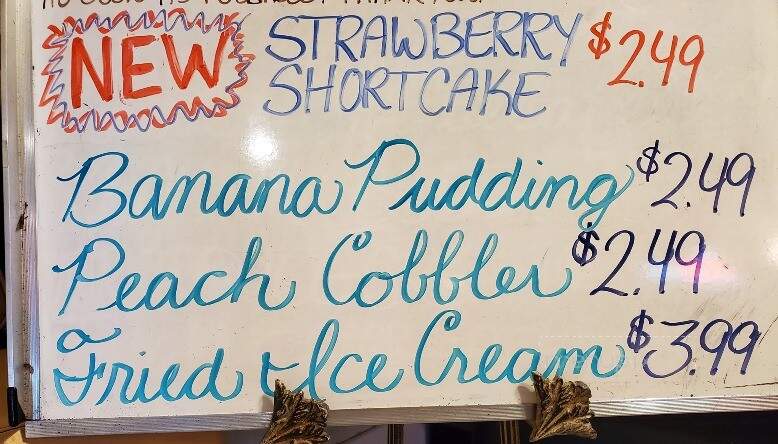 NEW STRAWBERRY SHORTCAKE $2.49
Banana Pudding $2.49
Peach Cobbler $2.49
Fried Ice Cream $3.99